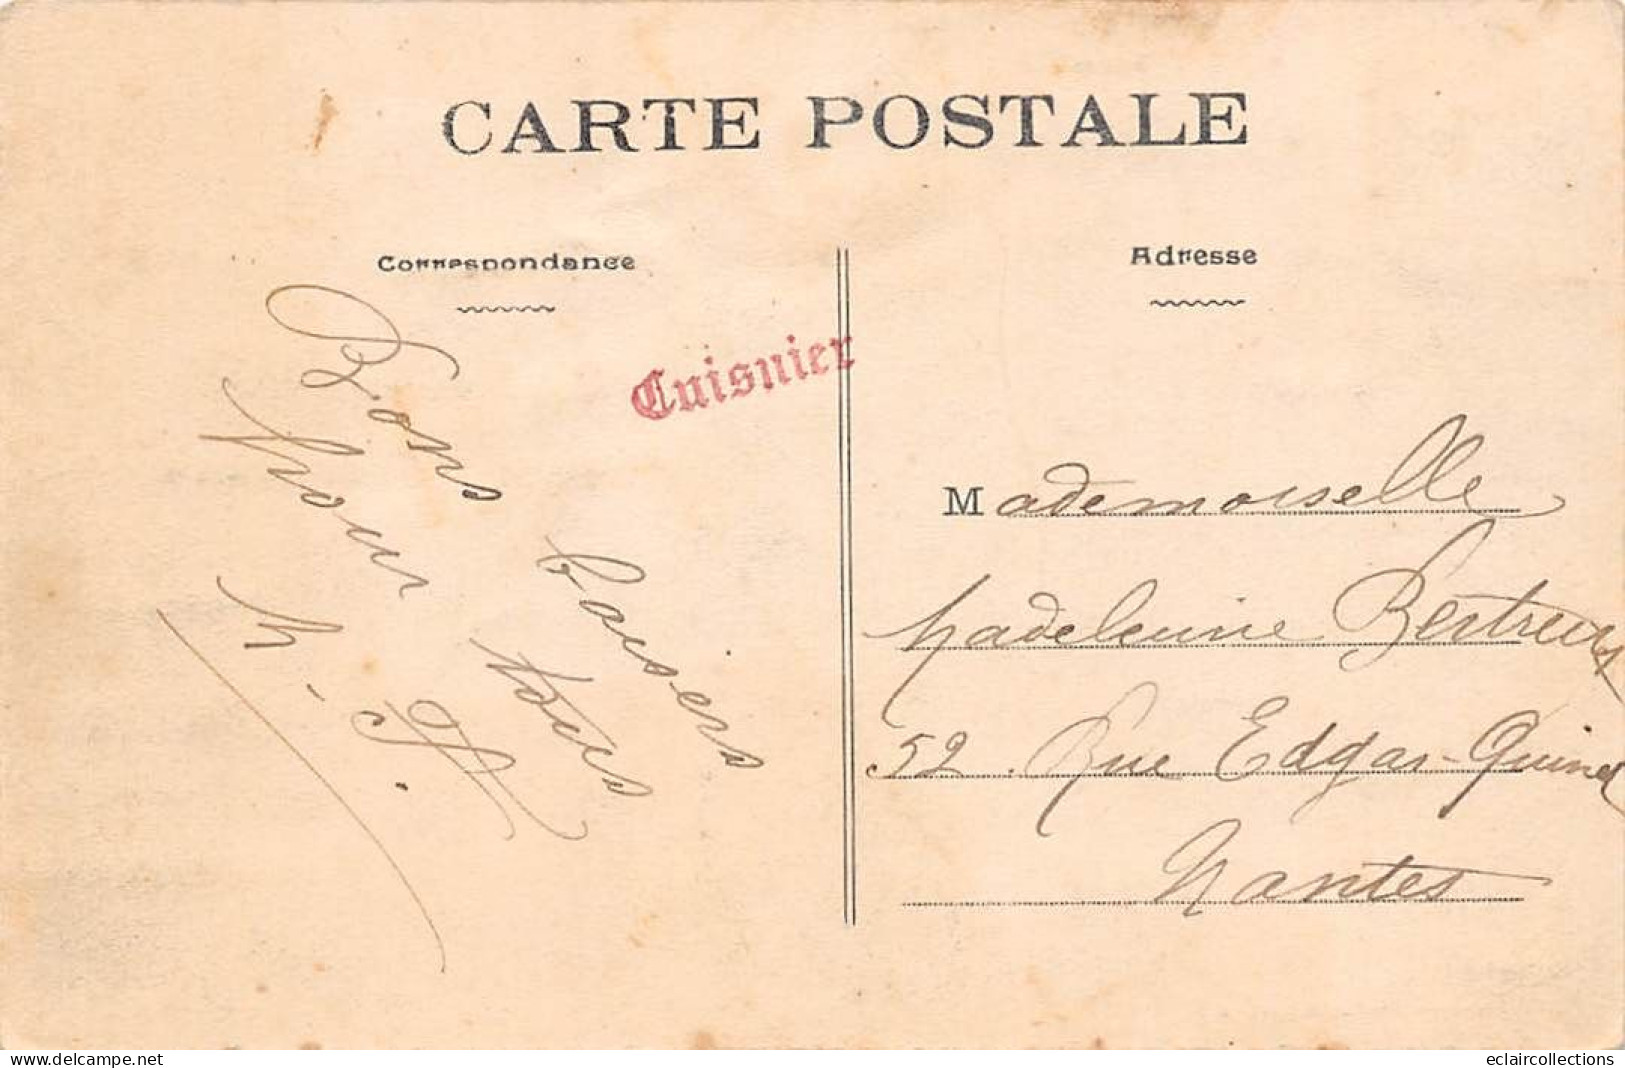 CARTE POSTALE
Correspondance
Adresse
Cuisnier
Bons baisers
pour tous
Mademoiselle
Madeleine
52. Rue Edgar-Quinet
Nantes
www.delcampe.net
eclaircollections